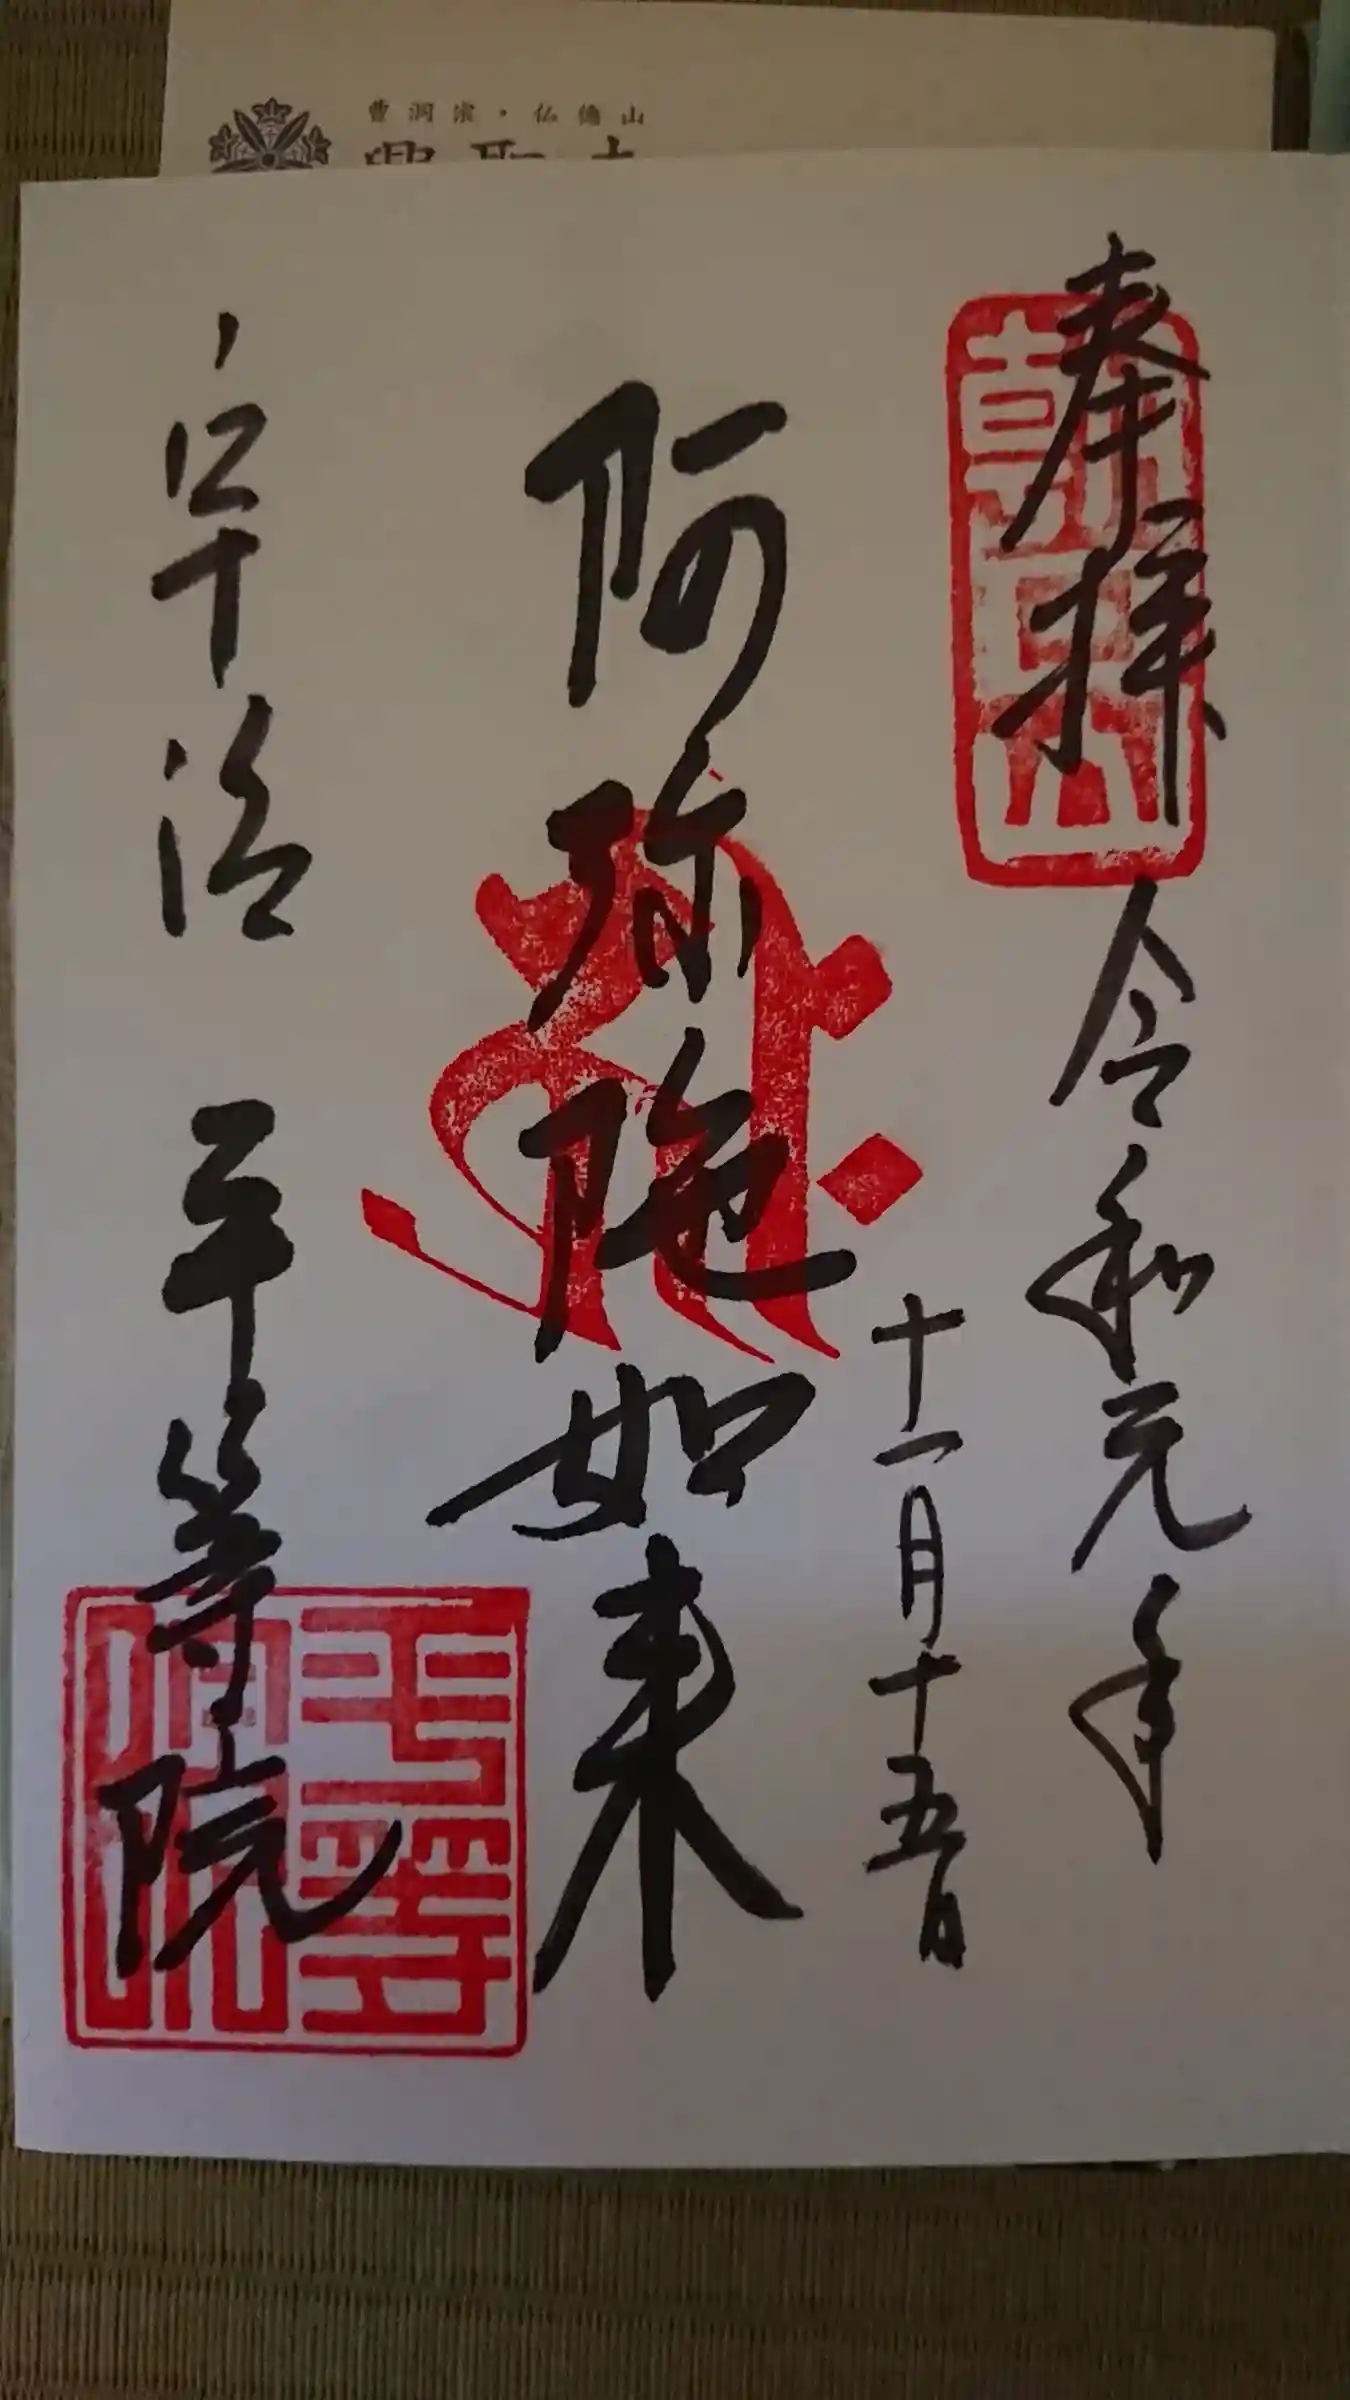 曹洞宗・仏徳山
奉拝 令和元年
十一月十五日
阿弥陀如来
宇治 平等院
朝日山
平等院印